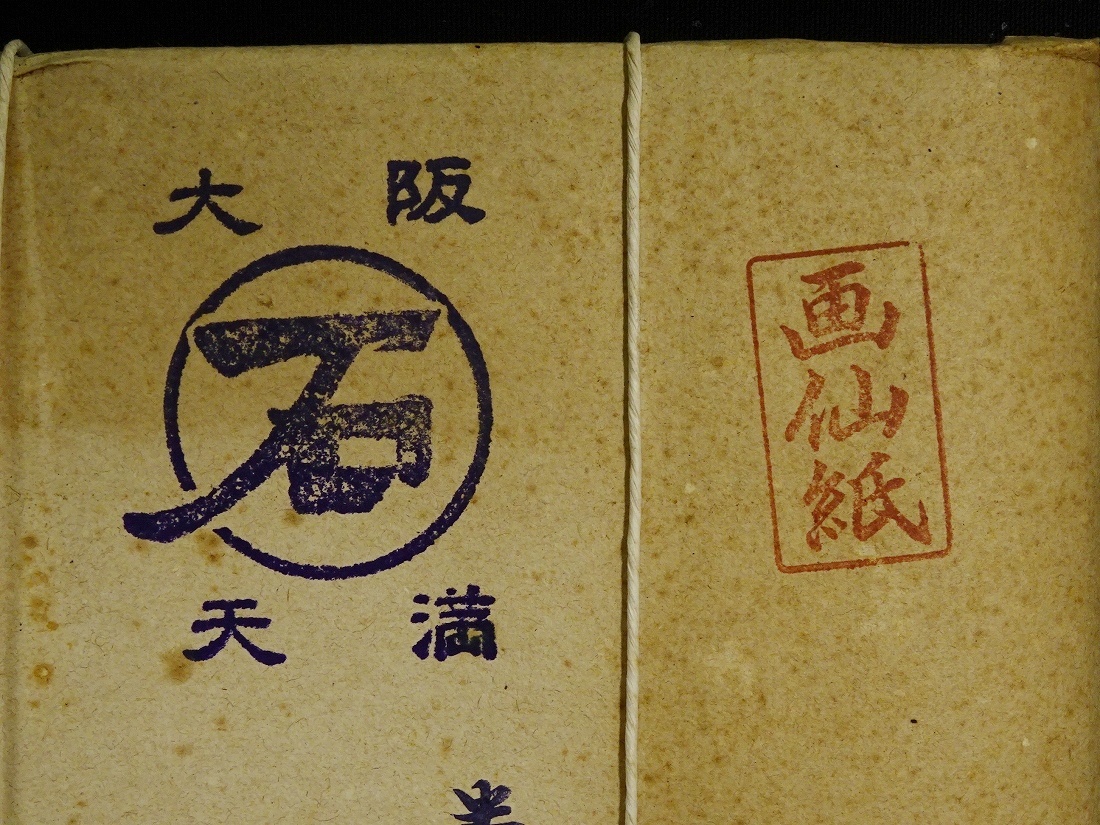 大阪
石
天満
画仙紙